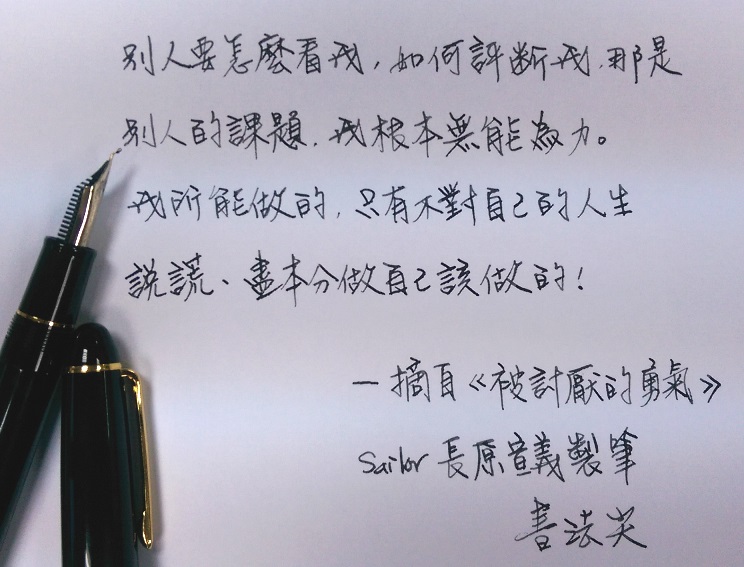 別人要怎麼看我，如何評斷我，那是
別人的課題，我根本無能為力。
我所能做的，只有不對自己的人生
說謊、盡本分做自己該做的！
— 摘自《被討厭的勇氣》
Sailor 長原宣義製筆
書法尖